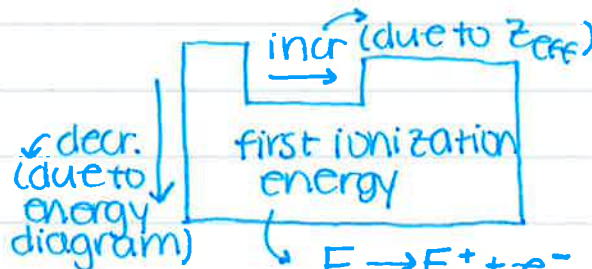 incr (due to Zeff)
decr.
(due to
energy
diagram)
first ionization
energy
E → E⁺ + e⁻